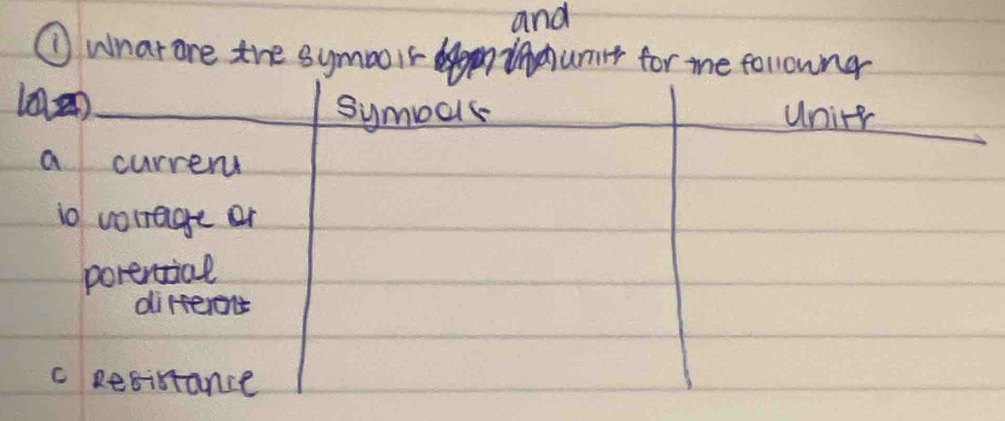 and
① What are the symbols units for the following
Symbols Units
a current
b voltage or
potential
different
c Resistance